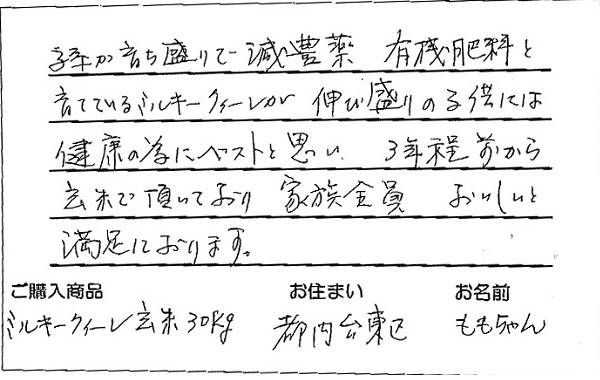 孫が育ち盛りで減農薬 有機肥料と
育てているミルキークィーンが 伸び盛りの子供には
健康の為にベストと思い 3年程前から
玄米で頂いており 家族全員 おいしいと
満足しております。
ご購入商品 お住まい お名前
ミルキークィーン玄米30kg 都内台東区 ももちゃん